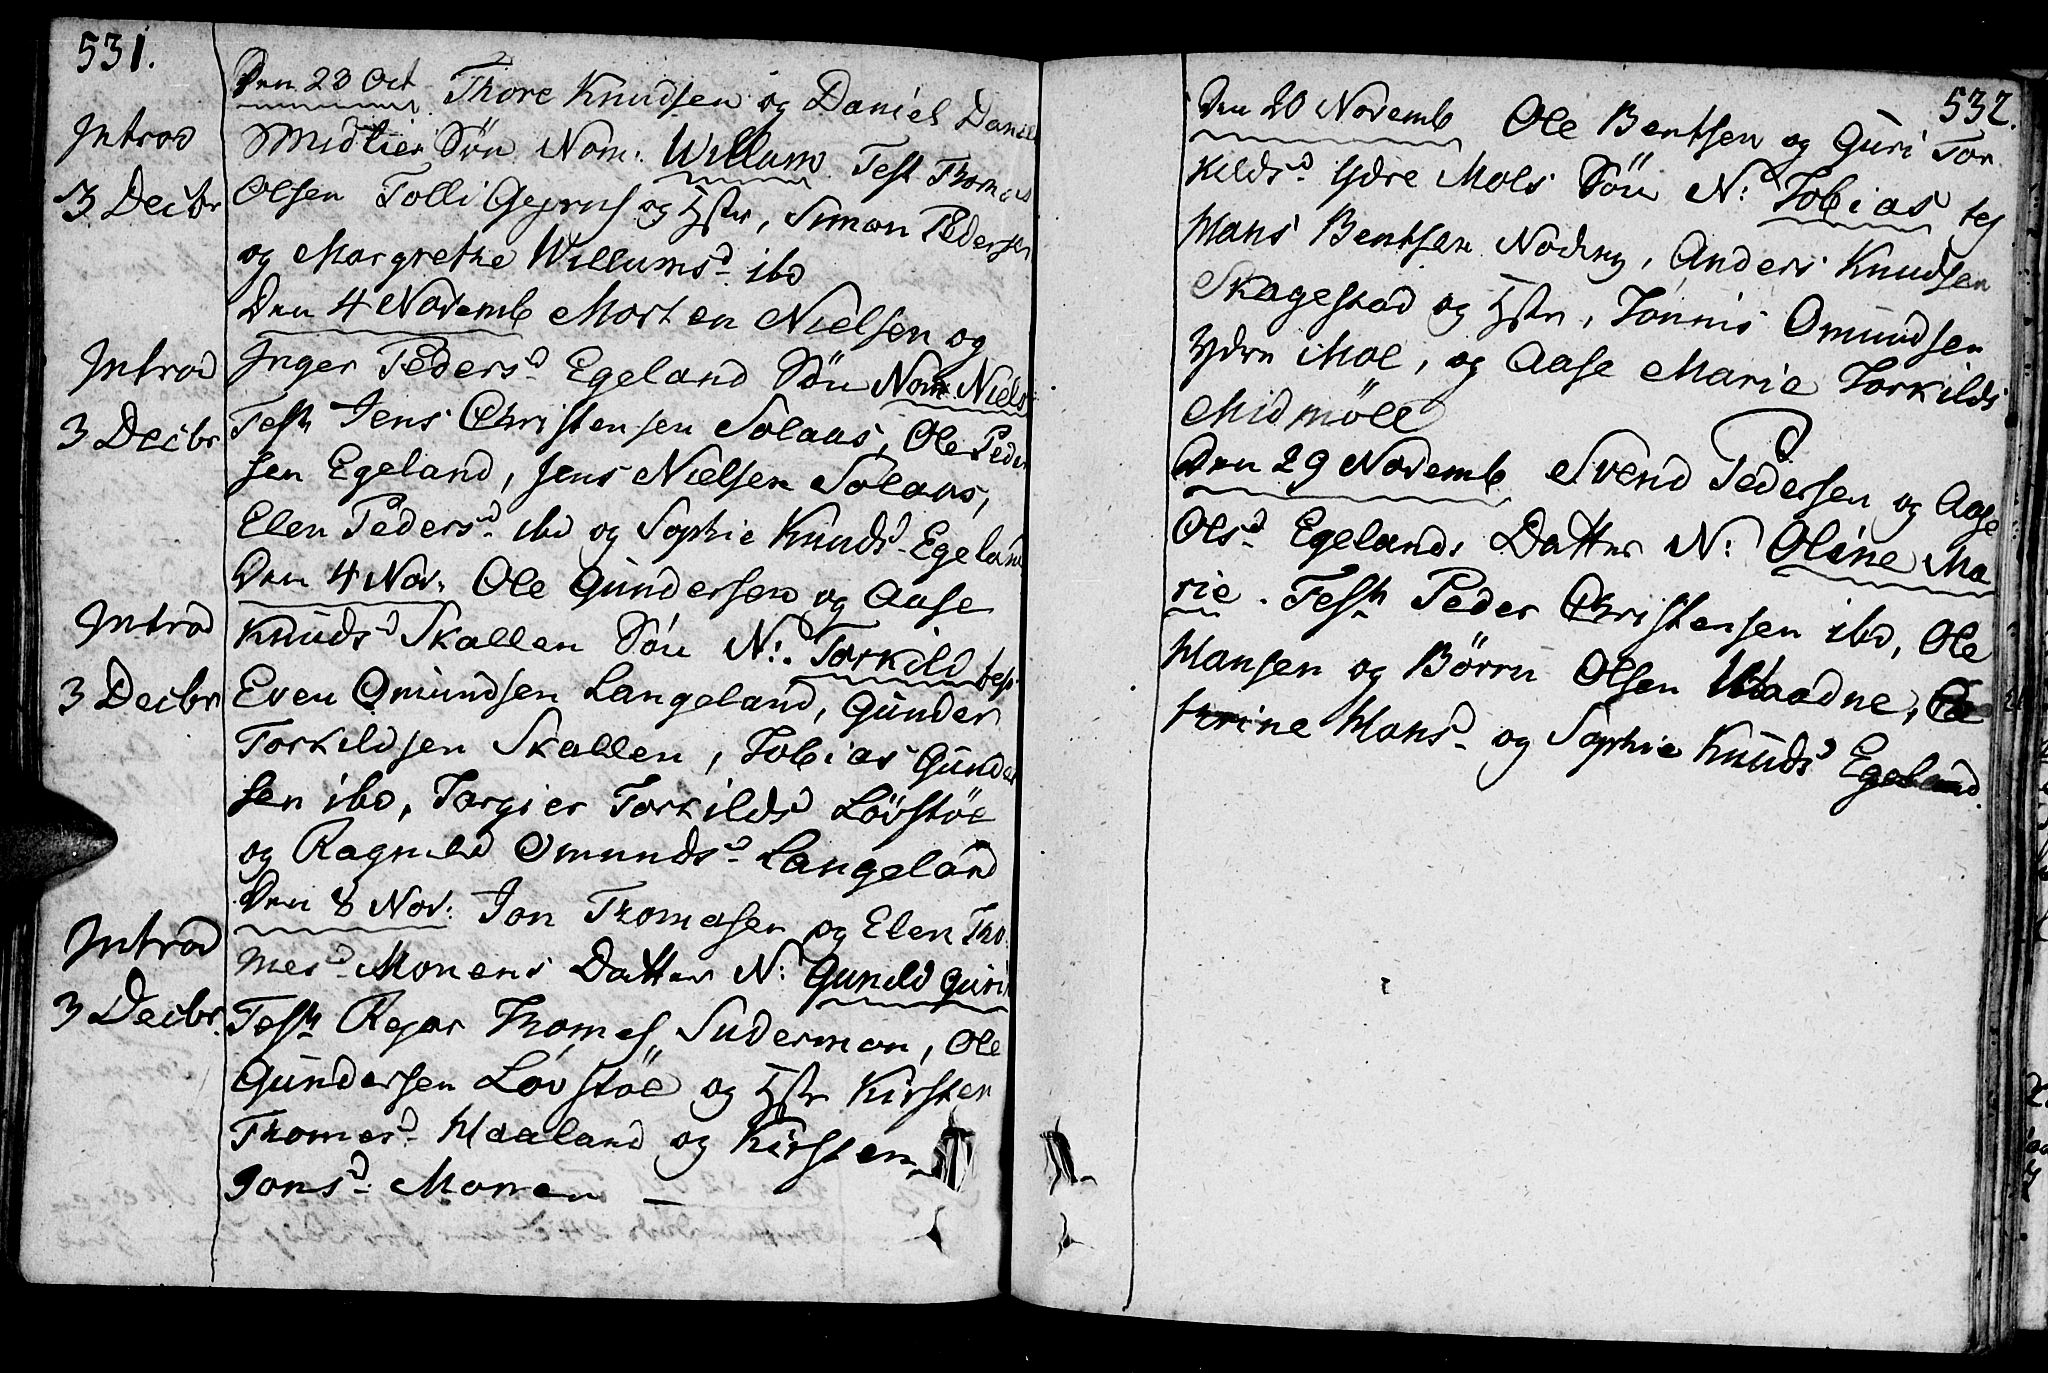 531.
Den 23 Oct Thore Knudsen og Daniel Daniel
Midlier Søn Nom: Willum Test Thomas
Introd
3 Decbr
Olsen Tolli og Hstr, Simon Pedersen
og Margrethe Willumsd ibd
Den 4 Novemb Morten Nielsen og
Introd
3 Decbr
Inger Pedersd Egeland Søn Nom Niels
Test Jens Christensen Solaas, Ole Peder
sen Egeland, Jens Nielsen Solaas,
Elen Pedersd ibd og Sophie Knudsd Egeland
Den 4 Nov: Ole Gundersen og Aase
Introd
3 Decbr
Knudsd Skallen Søn N: Torkild test
Even Omundsen Langeland, Gunder
Torkildsen Skallen, Tobias Gunder
sen ibd, Torgier Torkildsd Løvstøe
og Ragnild Omundsd Langeland
Den 8 Nov: Jon Thomesen og Elen Tho
Introd
3 Decbr.
mesd Monens Datter N: Gunild Guri
Test Rejar Thomes Suderman, Ole
Gundersen Løvstøe og Hstr Kirsten
Thomesd Haaland og Kirsten
Jonsd Monen —
532.
Den 20 Novemb Ole Bentsen og Guri Tor
kildsd Ydre Mols Søn N: Tobias tes
Hans Bentsen Noding, Anders Knudsen
Skagestad og Hstr, Tønnis Omundsen
Ydre Mol, og Aase Marie Torkilds
Midmøll
Den 29 Novemb Svend Pedersen og Aase
Olsd Egelands Datter N: Oline Ma
rie. Test Peder Christensen ibd, Ole
Hansen og Børre Olsen Udaadne, Ca
thrine Hansd og Sophie Knudsd Egeland.